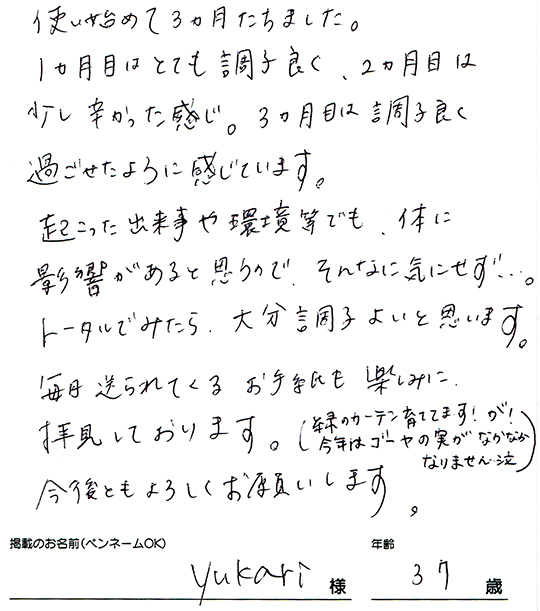 使い始めて3ヵ月たちました。
1ヵ月目はとても調子良く、2ヵ月目は
少し辛かった感じ。3ヵ月目は調子良く
過ごせたように感じています。
起こった出来事や環境等でも、体に
影響があると思うので、そんなに気にせず…。
トータルでみたら、大分調子よいと思います。
毎月送られてくるお手紙も楽しみに
拝見しております。(緑のカーテン育ててます!が!
今年はゴーヤの実がなかなか
なりません泣)
今後ともよろしくお願いします。
掲載のお名前(ペンネームOK) 年齢
yukari 様 37 歳